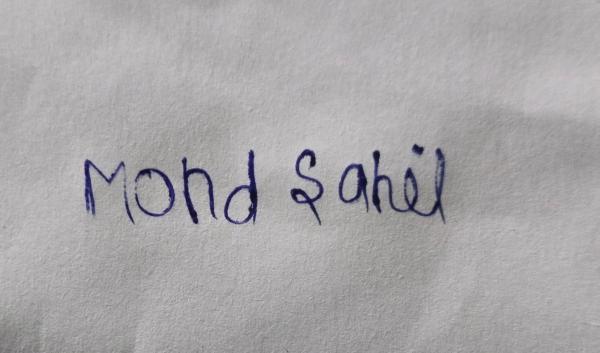 Mohd Sahil